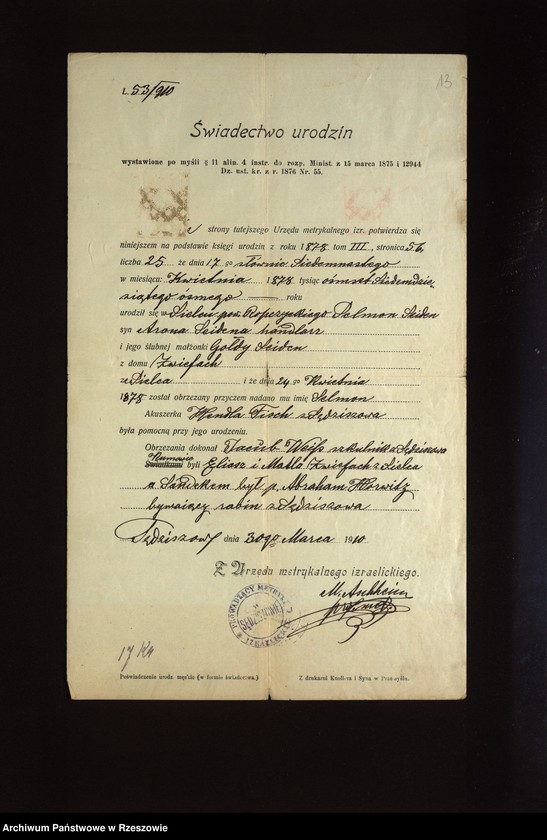 13
L. 53/910
Świadectwo urodzin
wystawione po myśli § 11 alin. 4 instr. do rozp. Minist. z 15 marca 1875 i 12944
Dz. ust. kr. z r. 1876 Nr. 55.
Z strony tutejszego Urzędu metrykalnego izr. potwierdza się
niniejszem na podstawie księgi urodzin z roku 1878 tom III, stronica 56,
liczba 25 że dnia 17 go słownie Siedemnastego
w miesiącu: Kwietnia 1878 tysiąc ośmset Siedemdzie,
siątego ósmego roku
urodził się w Sielcu pow. Ropczyckiego Selmon Seiden
syn Arona Seidena handlarz
i jego ślubnej małżonki Goldy Seiden
z domu Zwiefach
z Sielca i że dnia 24 go Kwietnia
1878 został obrzezany przyczem nadano mu imię Selmon
Akuszerka Hendla Fisch z Sędziszowa
była pomocną przy jego urodzeniu.
Obrzezania dokonał Jacub Weiss szkulnik z Sędziszowa
Kumowie
Świadkami byli Eliasz i Matla Zwiefach z Sielca
a Sandekem był p. Abraham Horwitz
bymaiący rabin z Sędziszowa
Sędziszow dnia 30go Marca 1910
Z Urzędu metrykalnego izraelickiego.
PROWADZĄCY METRYKI
w
SĘDZISZOWIE
IZRAELICKIE
17 Ka
Poświadczenie urodz. męzkie (w formie świadectwa.)
Z drukarni Knollera i Syna w Przemyślu.
Archiwum Państwowe w Rzeszowie